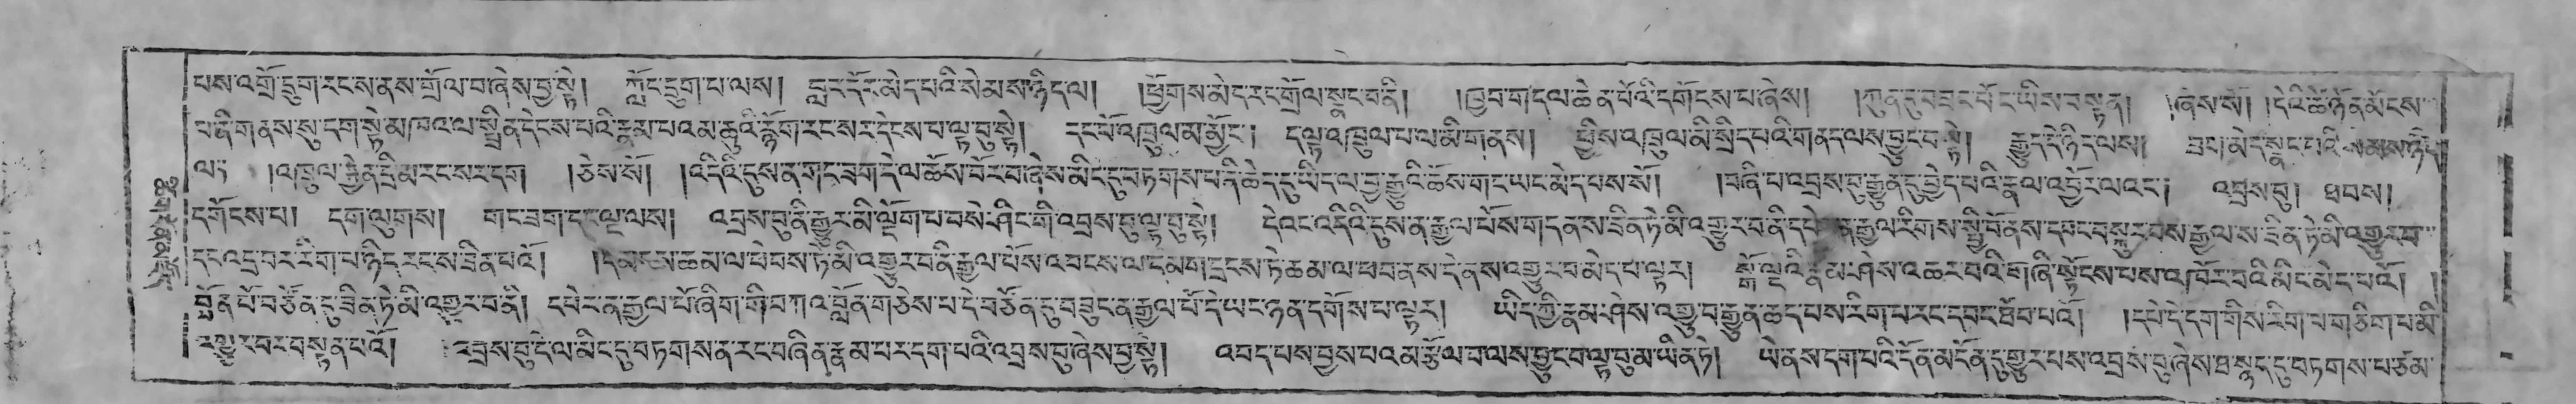 པས་འགྲོ་དྲུག་རང་ས་ནས་གྲོལ་བ་ཞེས་བྱ་སྟེ། ཀློང་དྲུག་པ་ལས། བླར་དོར་མེད་པའི་སེམས་ཉིད་ལ། །ཕྱོགས་མེད་རང་གྲོལ་སྣང་བ་ནི། །ཁྱབ་གདལ་ཆེན་པོའི་དགོངས་པ་ཞེས། །ཀུན་ཏུ་བཟང་པོ་ང་ཡིས་བསྟན། །ཞེས་སོ། །དེའི་ཚེ་ཉོན་མོངས་
བ་ནི་གནས་སུ་དག་སྟེ་མཁའ་ལ་སྤྲིན་དེངས་པའི་རྣམ་པའམ་ཆུའི་རྙོག་རང་སར་དེངས་པ་ལྟ་བུ་སྟེ། དང་པོ་འཁྲུལ་མ་མྱོང་། ད་ལྟ་འཁྲུལ་པ་ལ་མི་གནས། ཕྱིས་འཁྲུལ་མི་སྲིད་པའི་གནད་ལས་བྱུང་བ་སྟེ། རྒྱུད་དེ་ཉིད་ལས། ཟང་མེད་སྣང་བའི་སེམས་ཉིད་
ལ། །འཁྲུལ་རྐྱེན་དྲི་མ་རང་སར་དག །ཅེས་སོ། །འདིའི་དུས་ན་གང་ཟག་དེ་ལ་ཆོས་པོར་བ་ཞེས་མིང་དུ་བཏགས་པ་ནི་ཆེད་དུ་ཡིད་ལ་བྱ་རྒྱུའི་ཆོས་གང་ཡང་མེད་པས་སོ། །བཞི་པ་འབྲས་བུ་རྒྱུན་དུ་བྱེད་པའི་རྣལ་འབྱོར་ལའང་། འབྲས་བུ། ཐབས།
དགོངས་པ། དག་ལུགས། གང་ཟག་དང་ལྔ་ལས། འབྲས་བུ་ནི་རྒྱུར་མི་ལྡོག་པ་བསེ་ཤིང་གི་འབྲས་བུ་ལྟ་བུ་སྟེ། དེའང་འདིའི་དུས་ན་རྒྱལ་པོས་གདན་ས་ཟིན་ཏེ་མི་འགྱུར་བ་ནི་དཔེར་ན་རྒྱལ་རིགས་སྤྱི་བོ་ནས་དབང་བསྐུར་བས་རྒྱལ་ས་ཟིན་ཏེ་མི་འགྱུར་བ་
དང་འདྲ་བར་རིག་པ་ཉིད་རང་ས་ཟིན་པའོ། །དམངས་ཆམ་ལ་ཕེབས་ཏེ་མི་འགྱུར་བ་ནི་རྒྱལ་པོས་འབངས་ལ་དམག་དྲངས་ཏེ་ཆམ་ལ་ཕབ་ནས་དེ་ནས་འགྱུར་བ་མེད་པ་ལྟར། སྒོ་ལྔའི་རྣམ་ཤེས་འཆར་བའི་གཞི་སྟོངས་པས་འཁོར་བའི་མིང་མེད་པའོ། །
བློན་པོ་བཙོན་དུ་ཟིན་ཏེ་མི་འགྱུར་བ་ནི། དཔེར་ན་རྒྱལ་པོ་ཞིག་གི་བཀའ་བློན་གཅེས་པ་དེ་བཙོན་དུ་བཟུང་ན་རྒྱལ་པོ་དེ་ཡང་ཉན་དགོས་པ་ལྟར། ཡིད་ཀྱི་རྣམ་ཤེས་འགྱུ་བ་རྒྱུན་ཆད་པས་རིག་པ་རང་དབང་ཐོབ་པའོ། །དཔེ་དེ་དག་གིས་རིག་པ་གཅིག་པ་མི་
འགྱུར་བར་བསྟན་པའོ། །འབྲས་བུ་དེ་ལ་མིང་དུ་བཏགས་ན་རང་བཞིན་རྣམ་པར་དག་པའི་འབྲས་བུ་ཞེས་བྱ་སྟེ། འབད་པས་བྱས་པའམ་རྩོལ་བ་ལས་བྱུང་བ་ལྟ་བུ་མ་ཡིན་ཏེ། ཡེ་ནས་དག་པའི་དོན་མངོན་དུ་གྱུར་པས་འབྲས་བུ་ཞེས་ཐ་སྙད་དུ་བཏགས་པ་ཙམ་